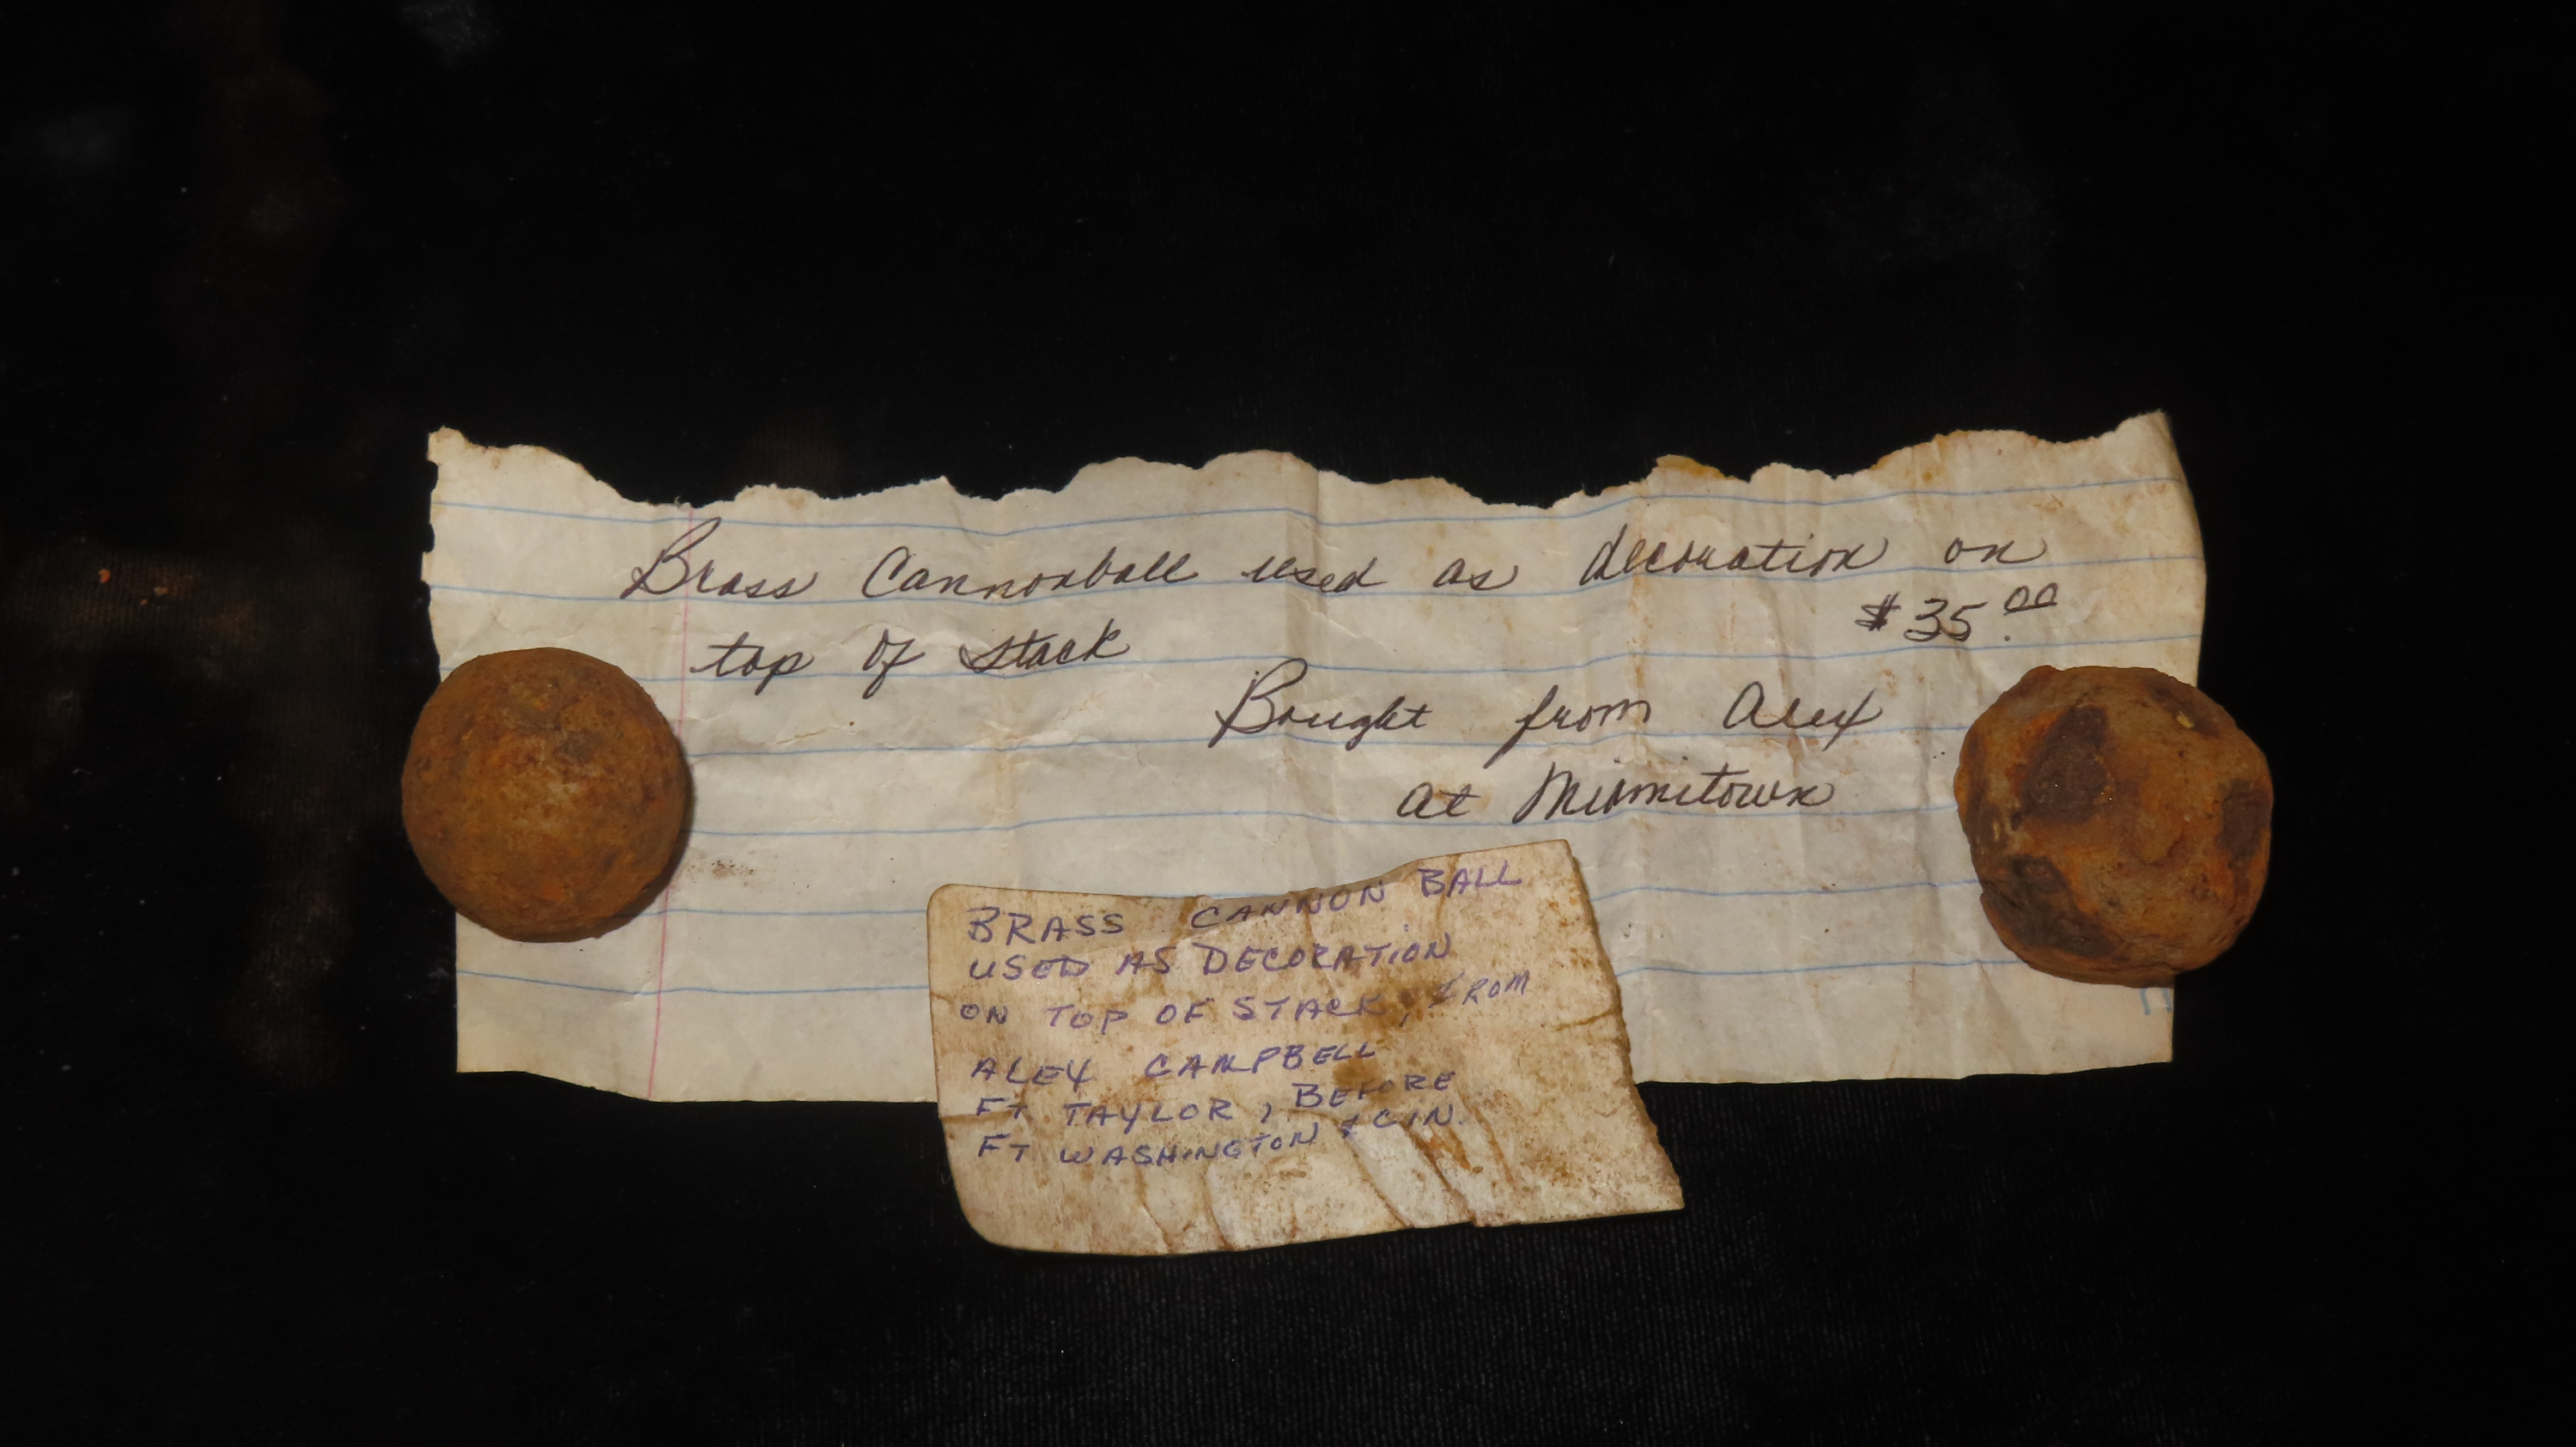 Brass Cannonball used as decoration on
$35.00
top of stack
Bought from Alex
at Miamitown
BRASS CANNON BALL
USED AS DECORATION
ON TOP OF STACK, FROM
ALEX CAMPBELL
FT TAYLOR, BEFORE
FT WASHINGTON & CIN.